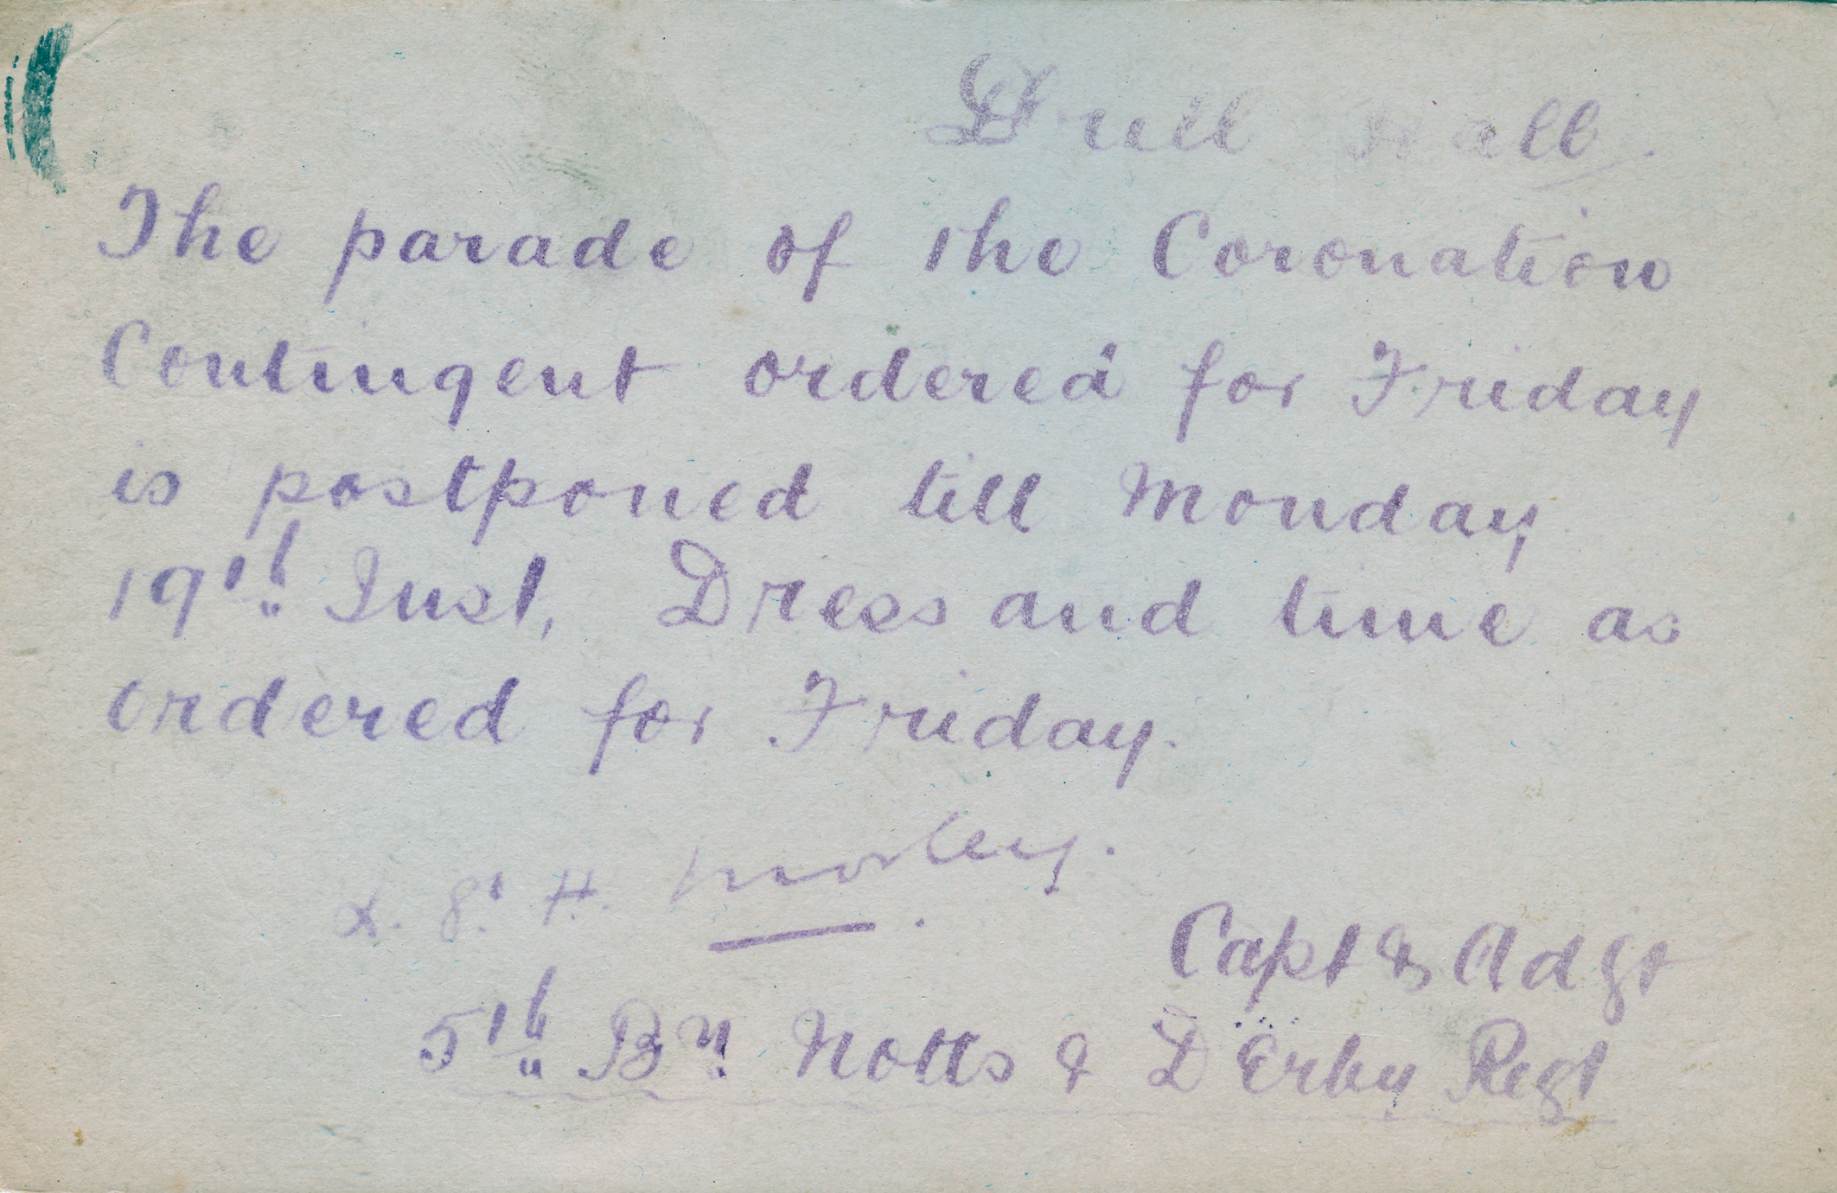 Drill Hall.
The parade of the Coronation
Contingent ordered for Friday
is postponed till Monday
19th Inst, Dress and time as
ordered for Friday.
H. Morley.
Capt & Adgt
5th Bn Notts & Derby Regt